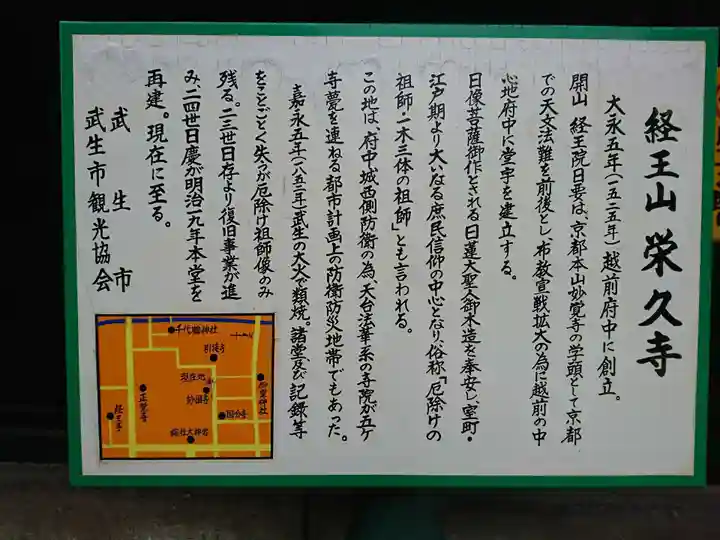 経王山 栄久寺
大永五年(一五二五年)越前府中に創立。
開山 経王院日要は、京都本山妙覚寺の学頭として京都
での天文法難を前後とし、布教宣戦拡大の為に越前の中
心地府中に堂宇を建立する。
日像菩薩御作とされる日蓮大聖人御木造を奉安し、室町・
江戸期より大いなる庶民信仰の中心となり、俗称「厄除けの
祖師・一木三体の祖師」とも言われる。
この地は、府中城西側防衛の為、天台法華系の寺院が五ヶ
寺甍を連ねる都市計画上の防衛防災地帯でもあった。
嘉永五年(一八五二年)武生の大火で類焼。諸堂及び記録等
をことごとく失うが厄除け祖師像のみ
残る。二三世日存より復旧事業が進
み、二四世日慶が明治一九年本堂を
再建。現在に至る。
武生市
武生市観光協会
千代鶴神社
引接寺
現在地
妙国寺
正覚寺
経王寺
国分寺
御霊神社
総社大神宮